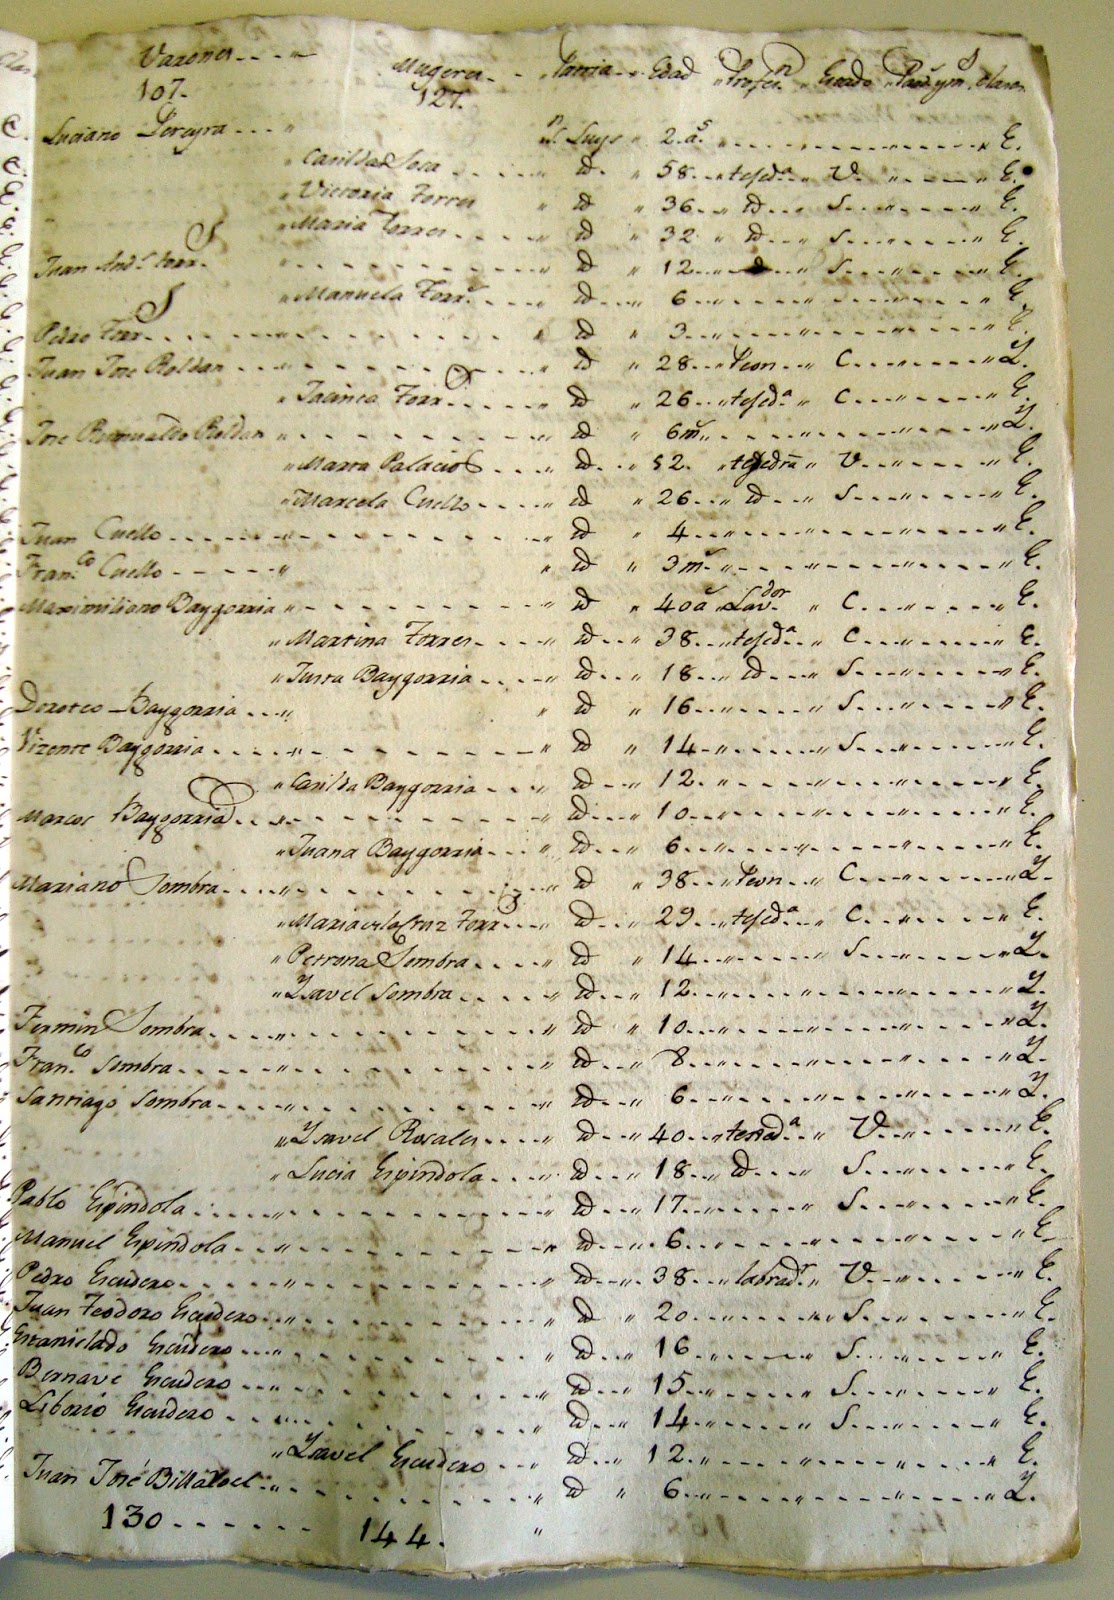 Varones Mugeres Patria Edad Profes.n Estado Clases
107. 127.
Luciano Pereyra S.n Luys 2 a.s E.
Casilda Sosa id 58 tesed.a V. E.
Victoria Torres id 36 id S E.
Maria Torres id 32 id S E.
Juan And.s torr.s id 12 id S E.
Manuela Torr.s id 6 E.
Pedro Torr.s id 3 E.
Juan Jose Roldan id 28 Peon C Y.
Jacinta Torr.s id 26 tesed.a C E.
Jose Romualdo Roldan id 6 m.s Y.
Marta Palacios id 52 tesedra V E.
Marcela Cuello id 26 id S E.
Juan Cuello id 4 E.
Fran.co Cuello id 3 m.s E.
Maximiliano Baygorria id 40 a.s Lav.dor C E.
Martina Torres id 38 tesed.a C E.
Justa Baygorria id 18 id S E.
Doroteo Baygorria id 16 S E.
Vizente Baygorria id 14 S E.
Casilda Baygorria id 12 E.
Marcos Baygorria id 10 E.
Juana Baygorria id 6 E.
Mariano Sombra id 38 Peon C Y.
Maria de la Cruz Torr.s id 29 tesed.a C E.
Petrona Sombra id 14 S Y.
Ysavel Sombra id 12 Y.
Fermin Sombra id 10 Y.
Fran.co Sombra id 8 Y.
Santiago Sombra id 6 Y.
Ysavel Rosales id 40 tesed.a V E.
Lucia Espindola id 18 id S E.
Pablo Espindola id 17 S E.
Manuel Espindola id 6 E.
Pedro Escudero id 38 labrad.r V E.
Juan Teodoro Escudero id 20 S E.
Estanislado Escudero id 16 S E.
Bernave Escudero id 15 S E.
Liborio Escudero id 14 S E.
Ysavel Escudero id 12 E.
Juan José id 6 Y.
130 144.